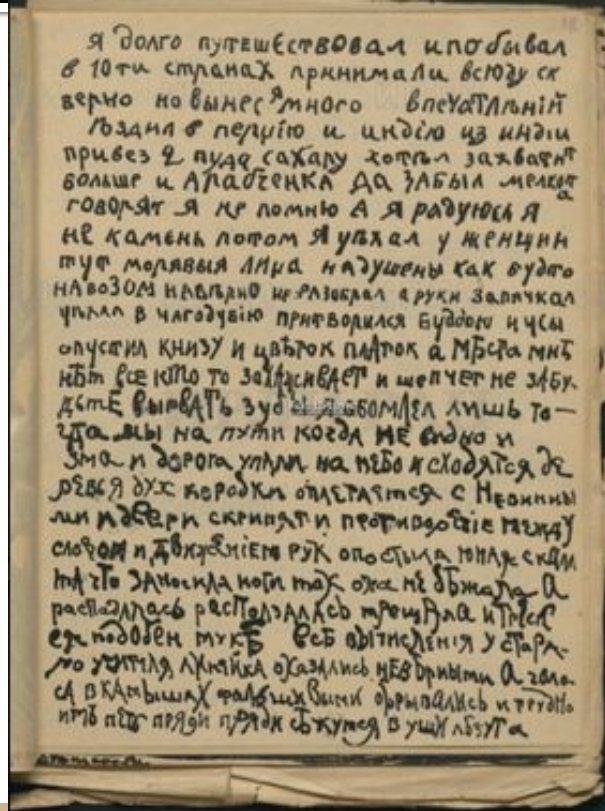 я долго путешествовал и побывал
в 10ти странах принимали всюду ск
верно но вынес я много впечатлѣній
ѣздил в персію и индію из индіи
привез 2 пуда сахару хотѣл захватит
больше и арабченка да забыл мелкота
говорят я не помню а я радуюсь я
не камень потом я уѣхал у женщин
тут морявыя лица надушены как будто
навозом навѣрно не разобрал а руки запачкал
уѣхал в притворился буддою и усы
опустил книзу и цвѣток платок а мѣста мнѣ
нѣт все кто то и шепчет не забу
дьте вырвать зуб и я обомлел лишь то—
гда мы на пути когда не видно и
зма и дорога упали на небо и сходятся де
ревья дух коробки оплетается с невинны
ми и двери скрипят и противорѣчіе между
словом и движеніем рук опостыла
что заносила ноги так она не бѣжала а
расползалась расползалась трещала и треск
ея подобен мукѣ всѣ вычисленія у стара-
го учителя линейка оказались невѣрными а голо
са в камышах фальшивыми обрывались и трудно
им пѣть пряди пряди в уши